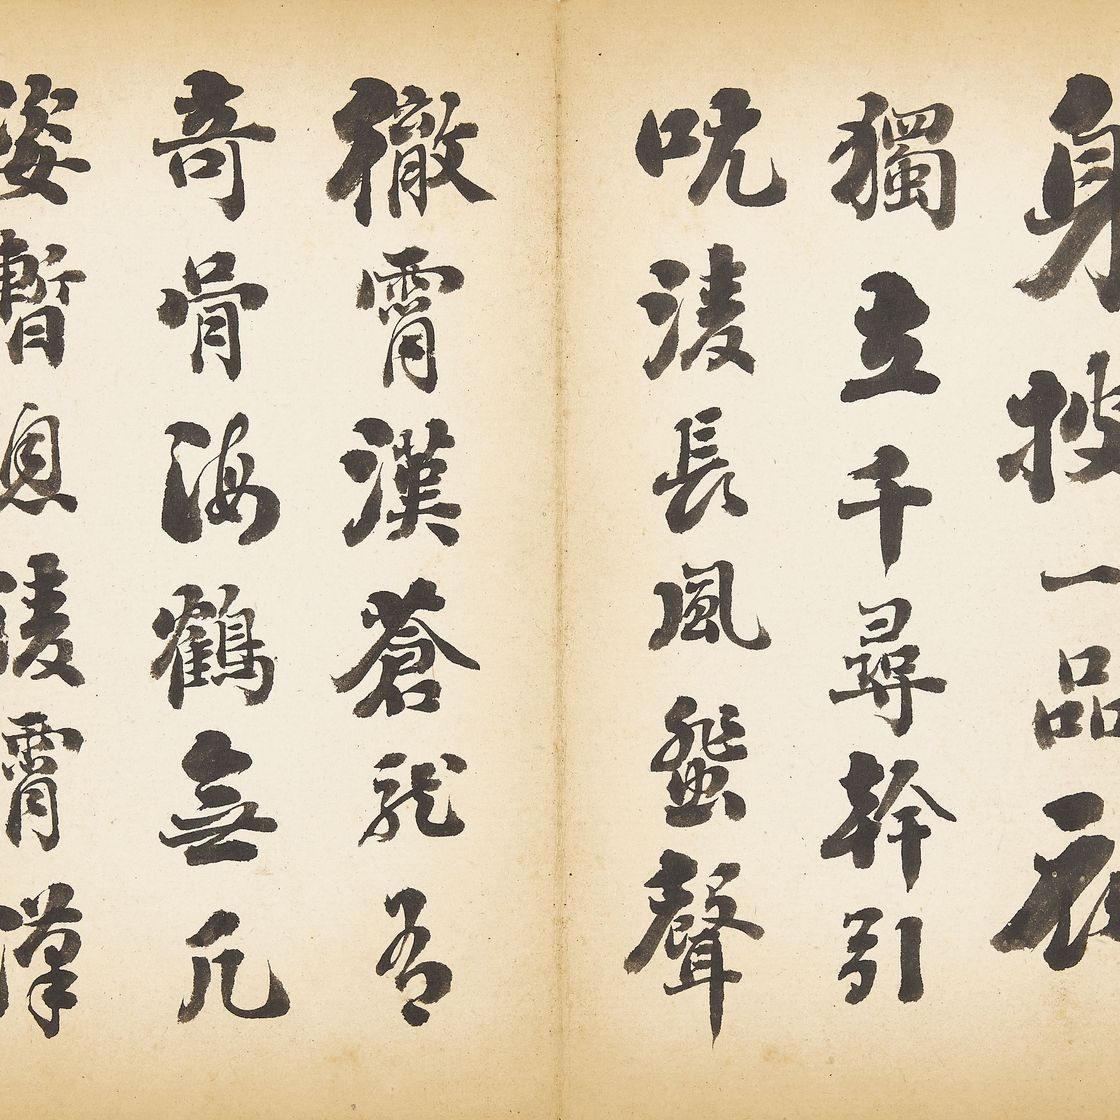 身披一品衣
獨立千尋幹引
吭淩長風蜚聲
徹霄漢蒼龍有
奇骨海鶴無凡
姿暫息淩霄漢